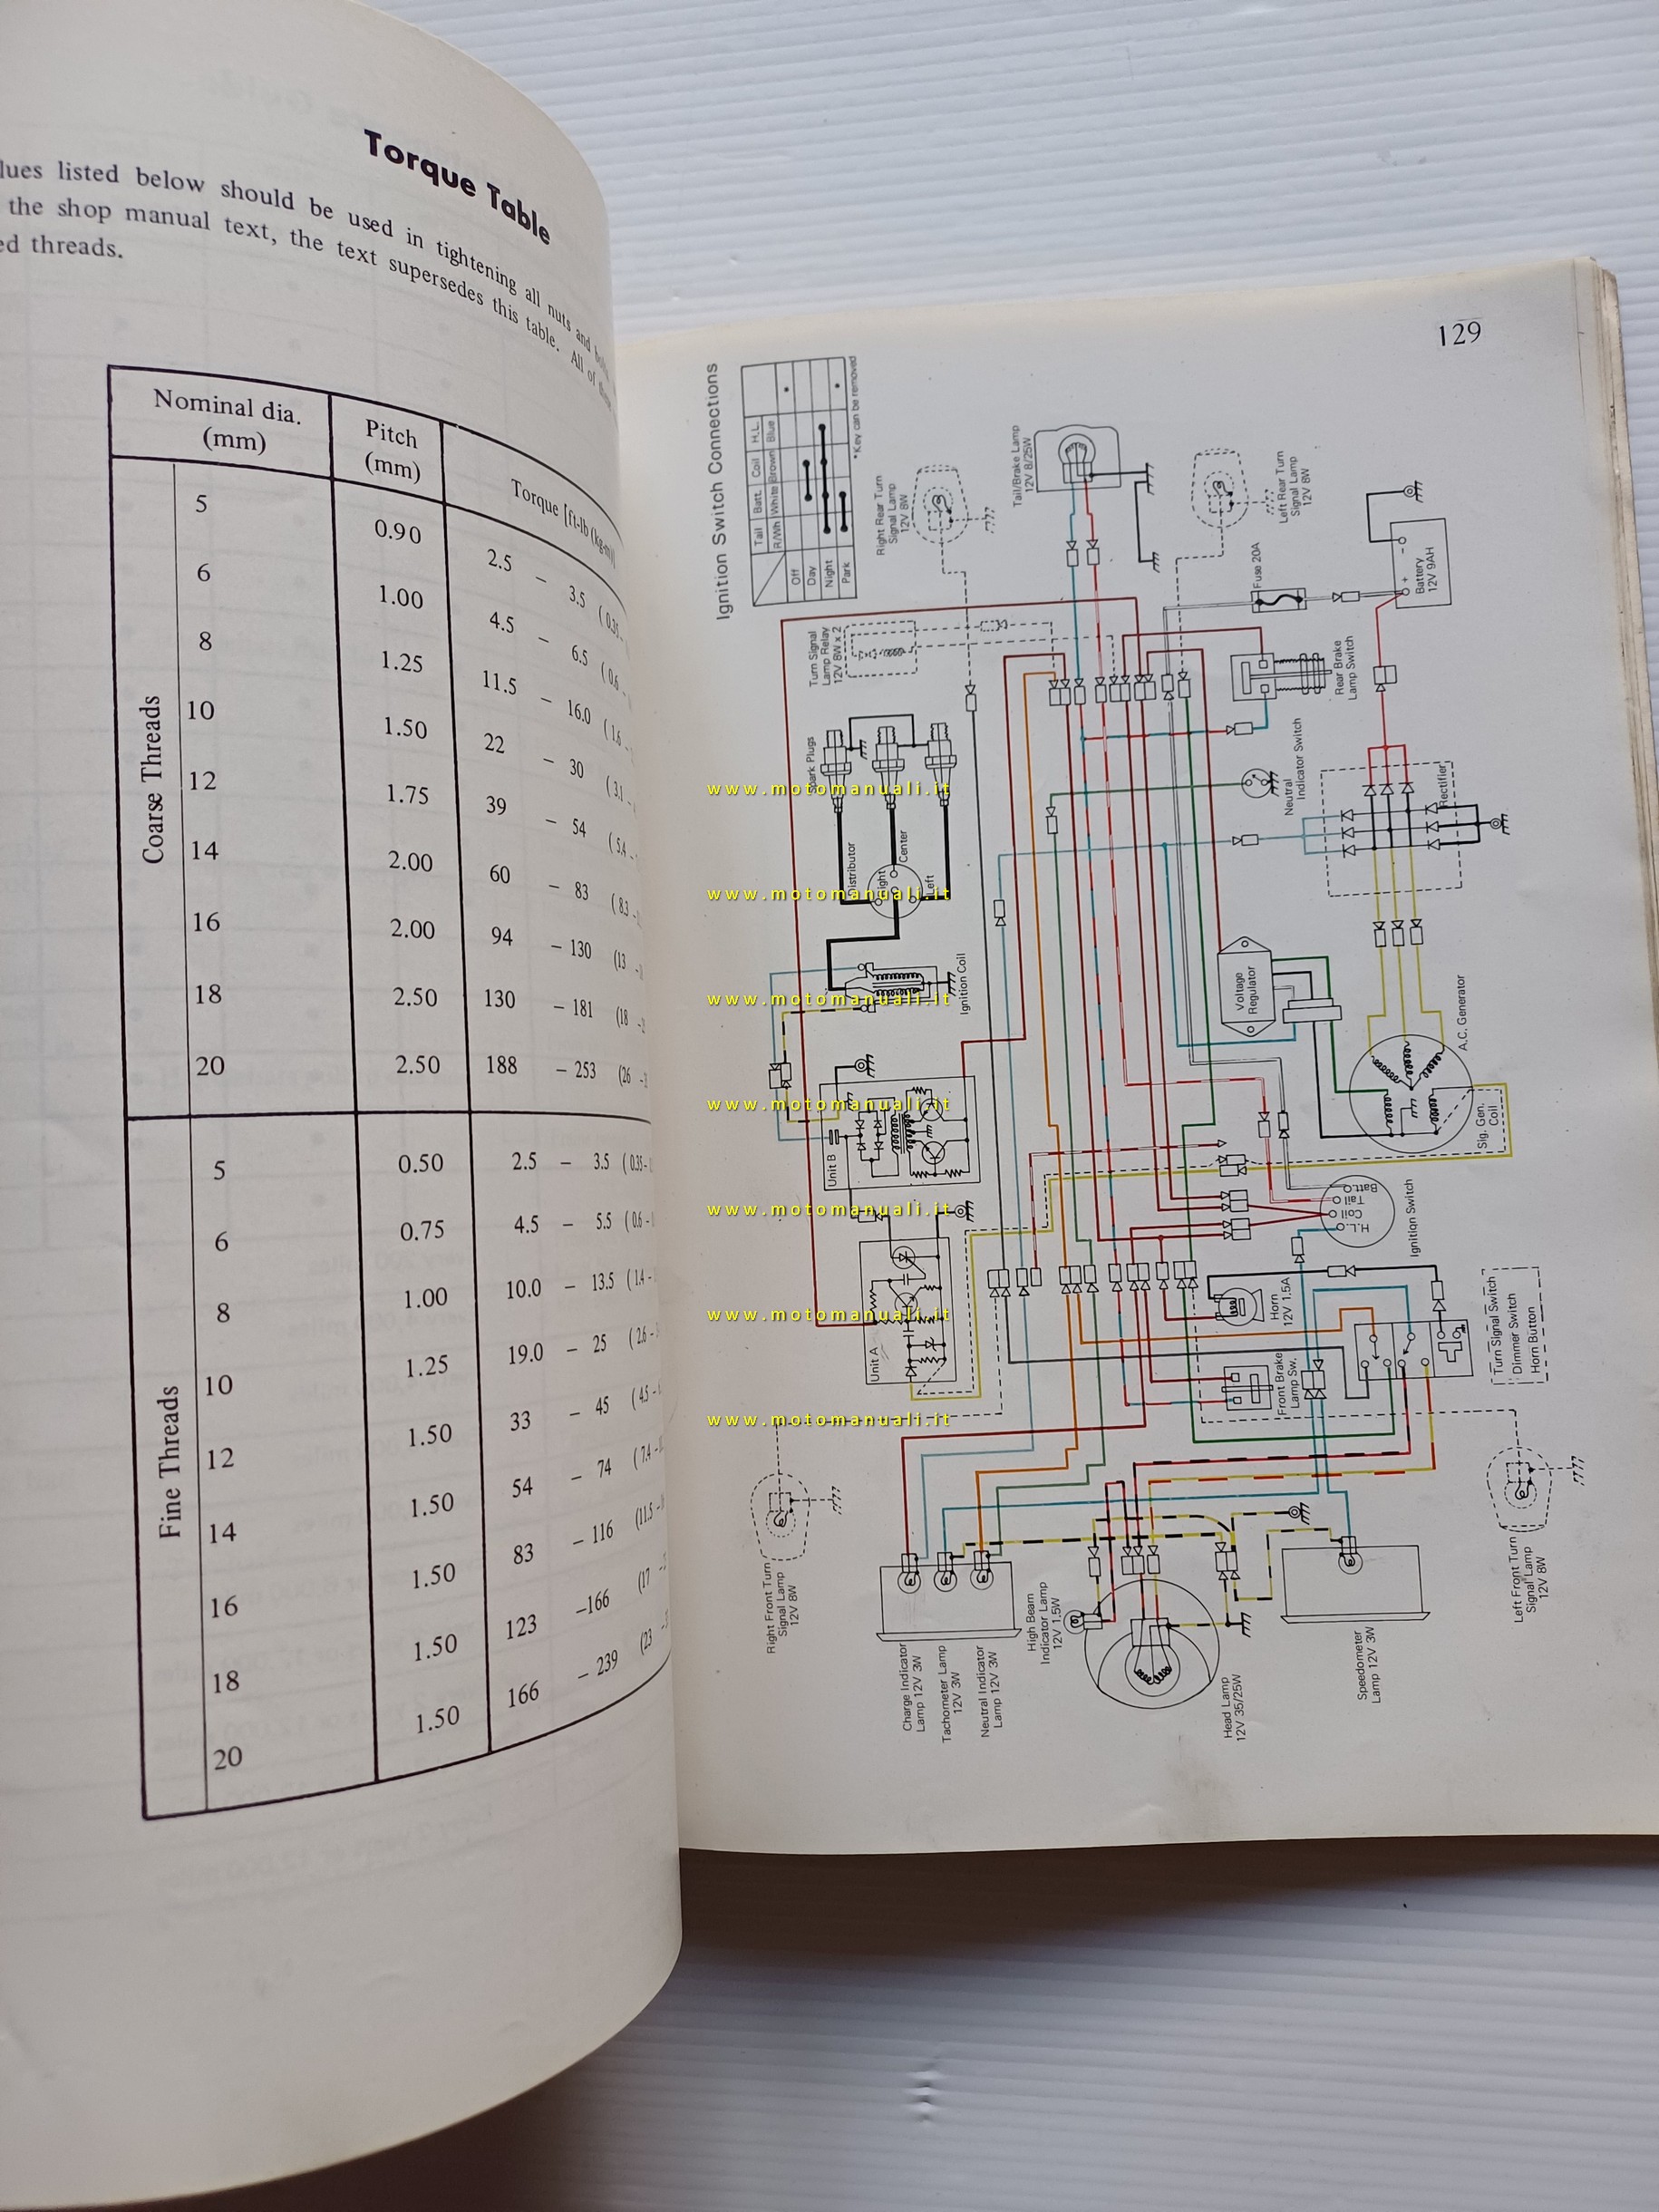 Torque Table
listed below should be used in tightening all nuts and
the shop manual text, the text supersedes this table. All of
threads.
Nominal dia. (mm) Pitch (mm) Torque [ft-lb (kg-m)]
Coarse Threads
5 0.90 2.5 – 3.5 (0.35
6 1.00 4.5 – 6.5 (0.6 –
8 1.25 11.5 – 16.0 (1.6 –
10 1.50 22 – 30 (3.1 –
12 1.75 39 – 54 (5.4 –
14 2.00 60 – 83 (8.3 –
16 2.00 94 – 130 (13 –
18 2.50 130 – 181 (18 –
20 2.50 188 – 253 (26 –
Fine Threads
5 0.50 2.5 – 3.5 (0.35 –
6 0.75 4.5 – 5.5 (0.6 –
8 1.00 10.0 – 13.5 (1.4 –
10 1.25 19.0 – 25 (2.6 –
12 1.50 33 – 45 (4.5 –
14 1.50 54 – 74 (7.4 –
16 1.50 83 – 116 (11.5 –
18 1.50 123 –166 (17
20 1.50 166 – 239 (23
129
Ignition Switch Connections
Tail Batt. Coil H.L.
R/Wh White Brown Blue
Off *
Day
Night
Park *
*Key can be removed
Right Rear Turn
Signal Lamp
12V 8W
Tail/Brake Lamp
12V 8/25W
Left Rear Turn
Signal Lamp
12V 8W
Turn Signal
Lamp Relay
12V 8W x 2
Fuse 20A
Battery
12V 9AH
+ -
Rear Brake
Lamp Switch
Neutral
Indicator Switch
Rectifier
Plugs
Distributor
Right
Center
Left
Ignition Coil
Voltage
Regulator
A.C. Generator
Sig. Gen.
Coil
Unit B
Unit A
Batt.
Tail
Coil
H.L.
Ignition Switch
Horn
12V 1.5A
Front Brake
Lamp Sw.
Turn Signal Switch
Dimmer Switch
Horn Button
Right Front Turn
Signal Lamp
12V 8W
Charge Indicator
Lamp 12V 3W
Tachometer Lamp
12V 3W
Neutral Indicator
Lamp 12V 3W
High Beam
Indicator Lamp
12V 1.5W
Head Lamp
12V 35/25W
Speedometer
Lamp 12V 3W
Left Front Turn
Signal Lamp
12V 8W
www.motomanuali.it
www.motomanuali.it
www.motomanuali.it
www.motomanuali.it
www.motomanuali.it
www.motomanuali.it
www.motomanuali.it